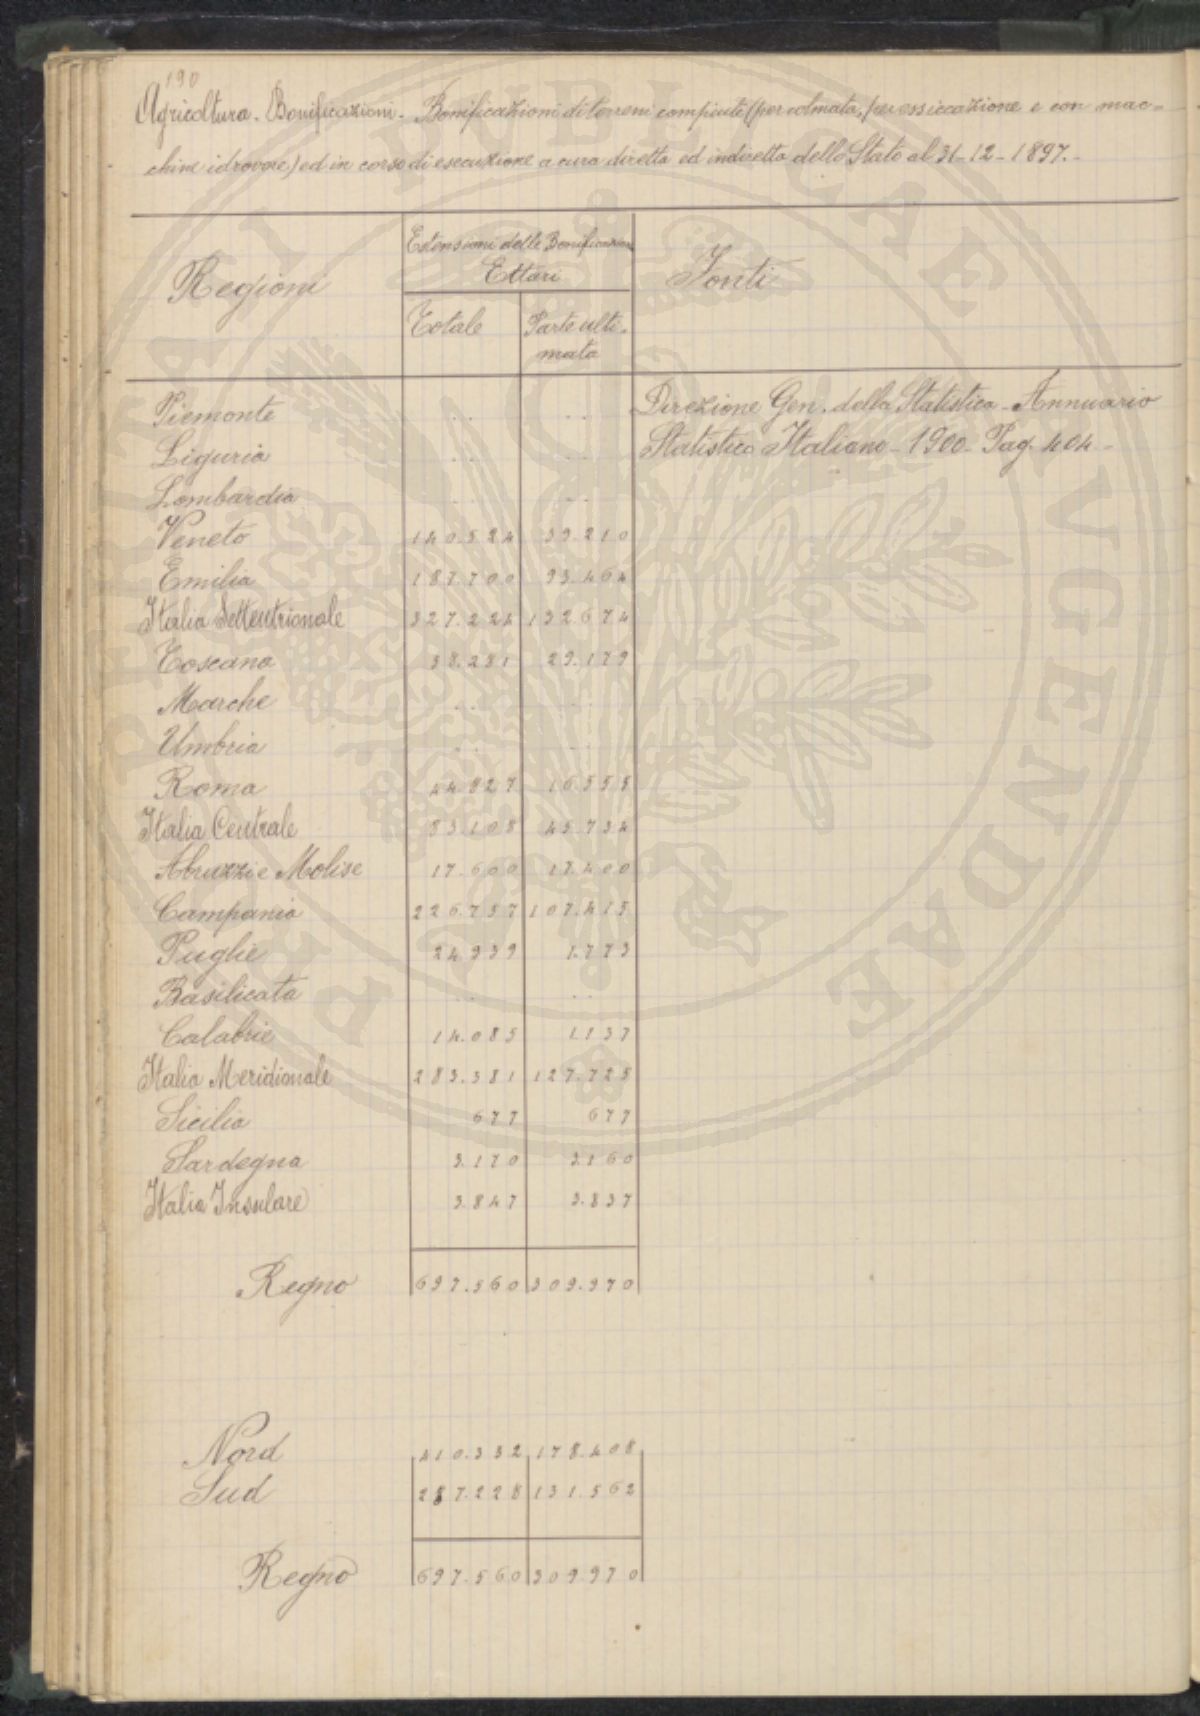 190
Agricoltura - Bonificazioni - Bonificazioni di terreni compiute (per colmata, per essiccazione e con mac=
chine idrovore) ed in corso di esecuzione a cura diretta ed indiretta dello Stato al 31-12-1897.-
Regioni Estensioni delle Bonificazioni Fonti
Ettari
Totale Parte ulti-
mata
Piemonte .. .. Direzione Gen. della Statistica - Annuario
Liguria .. .. Statistico Italiano - 1900 - Pag. 404 -
Lombardia .. ..
Veneto 140.524 39.210
Emilia 187.700 93.464
Italia Settentrionale 327.224 132.674
Toscana 38.281 29.179
Marche .. ..
Umbria .. ..
Roma 44.827 16.555
Italia Centrale 83.108 45.734
Abruzzi e Molise 17.600 17.400
Campania 226.757 107.415
Puglie 24.939 1.773
Basilicata .. ..
Calabrie 14.085 1.137
Italia Meridionale 283.381 127.725
Sicilia 677 677
Sardegna 3.170 3.160
Italia Insulare 3.847 3.837
Regno 697.560 309.970
Nord 410.332 178.408
Sud 287.228 131.562
Regno 697.560 309970